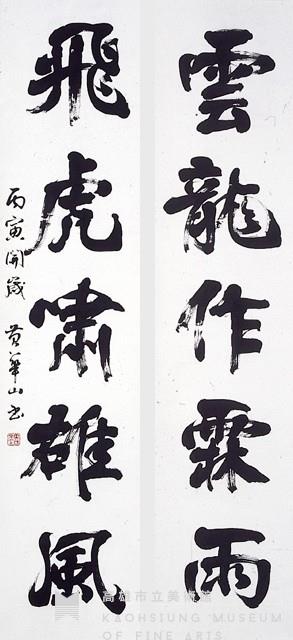 雲龍作霖雨
飛虎嘯雄風
丙寅開歲 黃華山書
高雄市立美術館
KAOHSIUNG MUSEUM
OF FINE ARTS